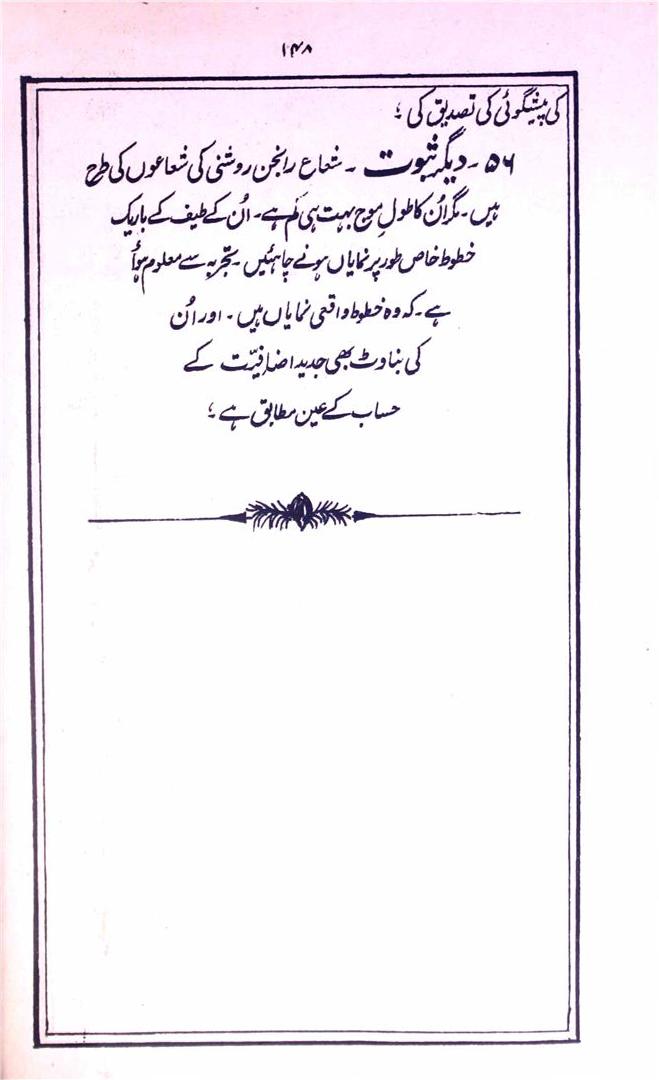 ۱۴۸
کی پیشگوئی کی تصدیق کی ؛
۵۶ ۔ دیگر ثبوت ۔ شعاع رانجن روشنی کی شعاعوں کی طرح
ہیں ۔ مگر اُن کا طولِ موج بہت ہی کم ہے ۔ اُن کے طیف کے باریک
خطوط خاص طور پر نمایاں ہونے چاہئیں ۔ تجربہ سے معلوم ہوأ
ہے ۔ کہ وہ خطوط واقعی نمایاں ہیں ۔ اور اُن
کی بناوٹ بھی جدید اضافیّت کے
حساب کے عین مطابق ہے ؛